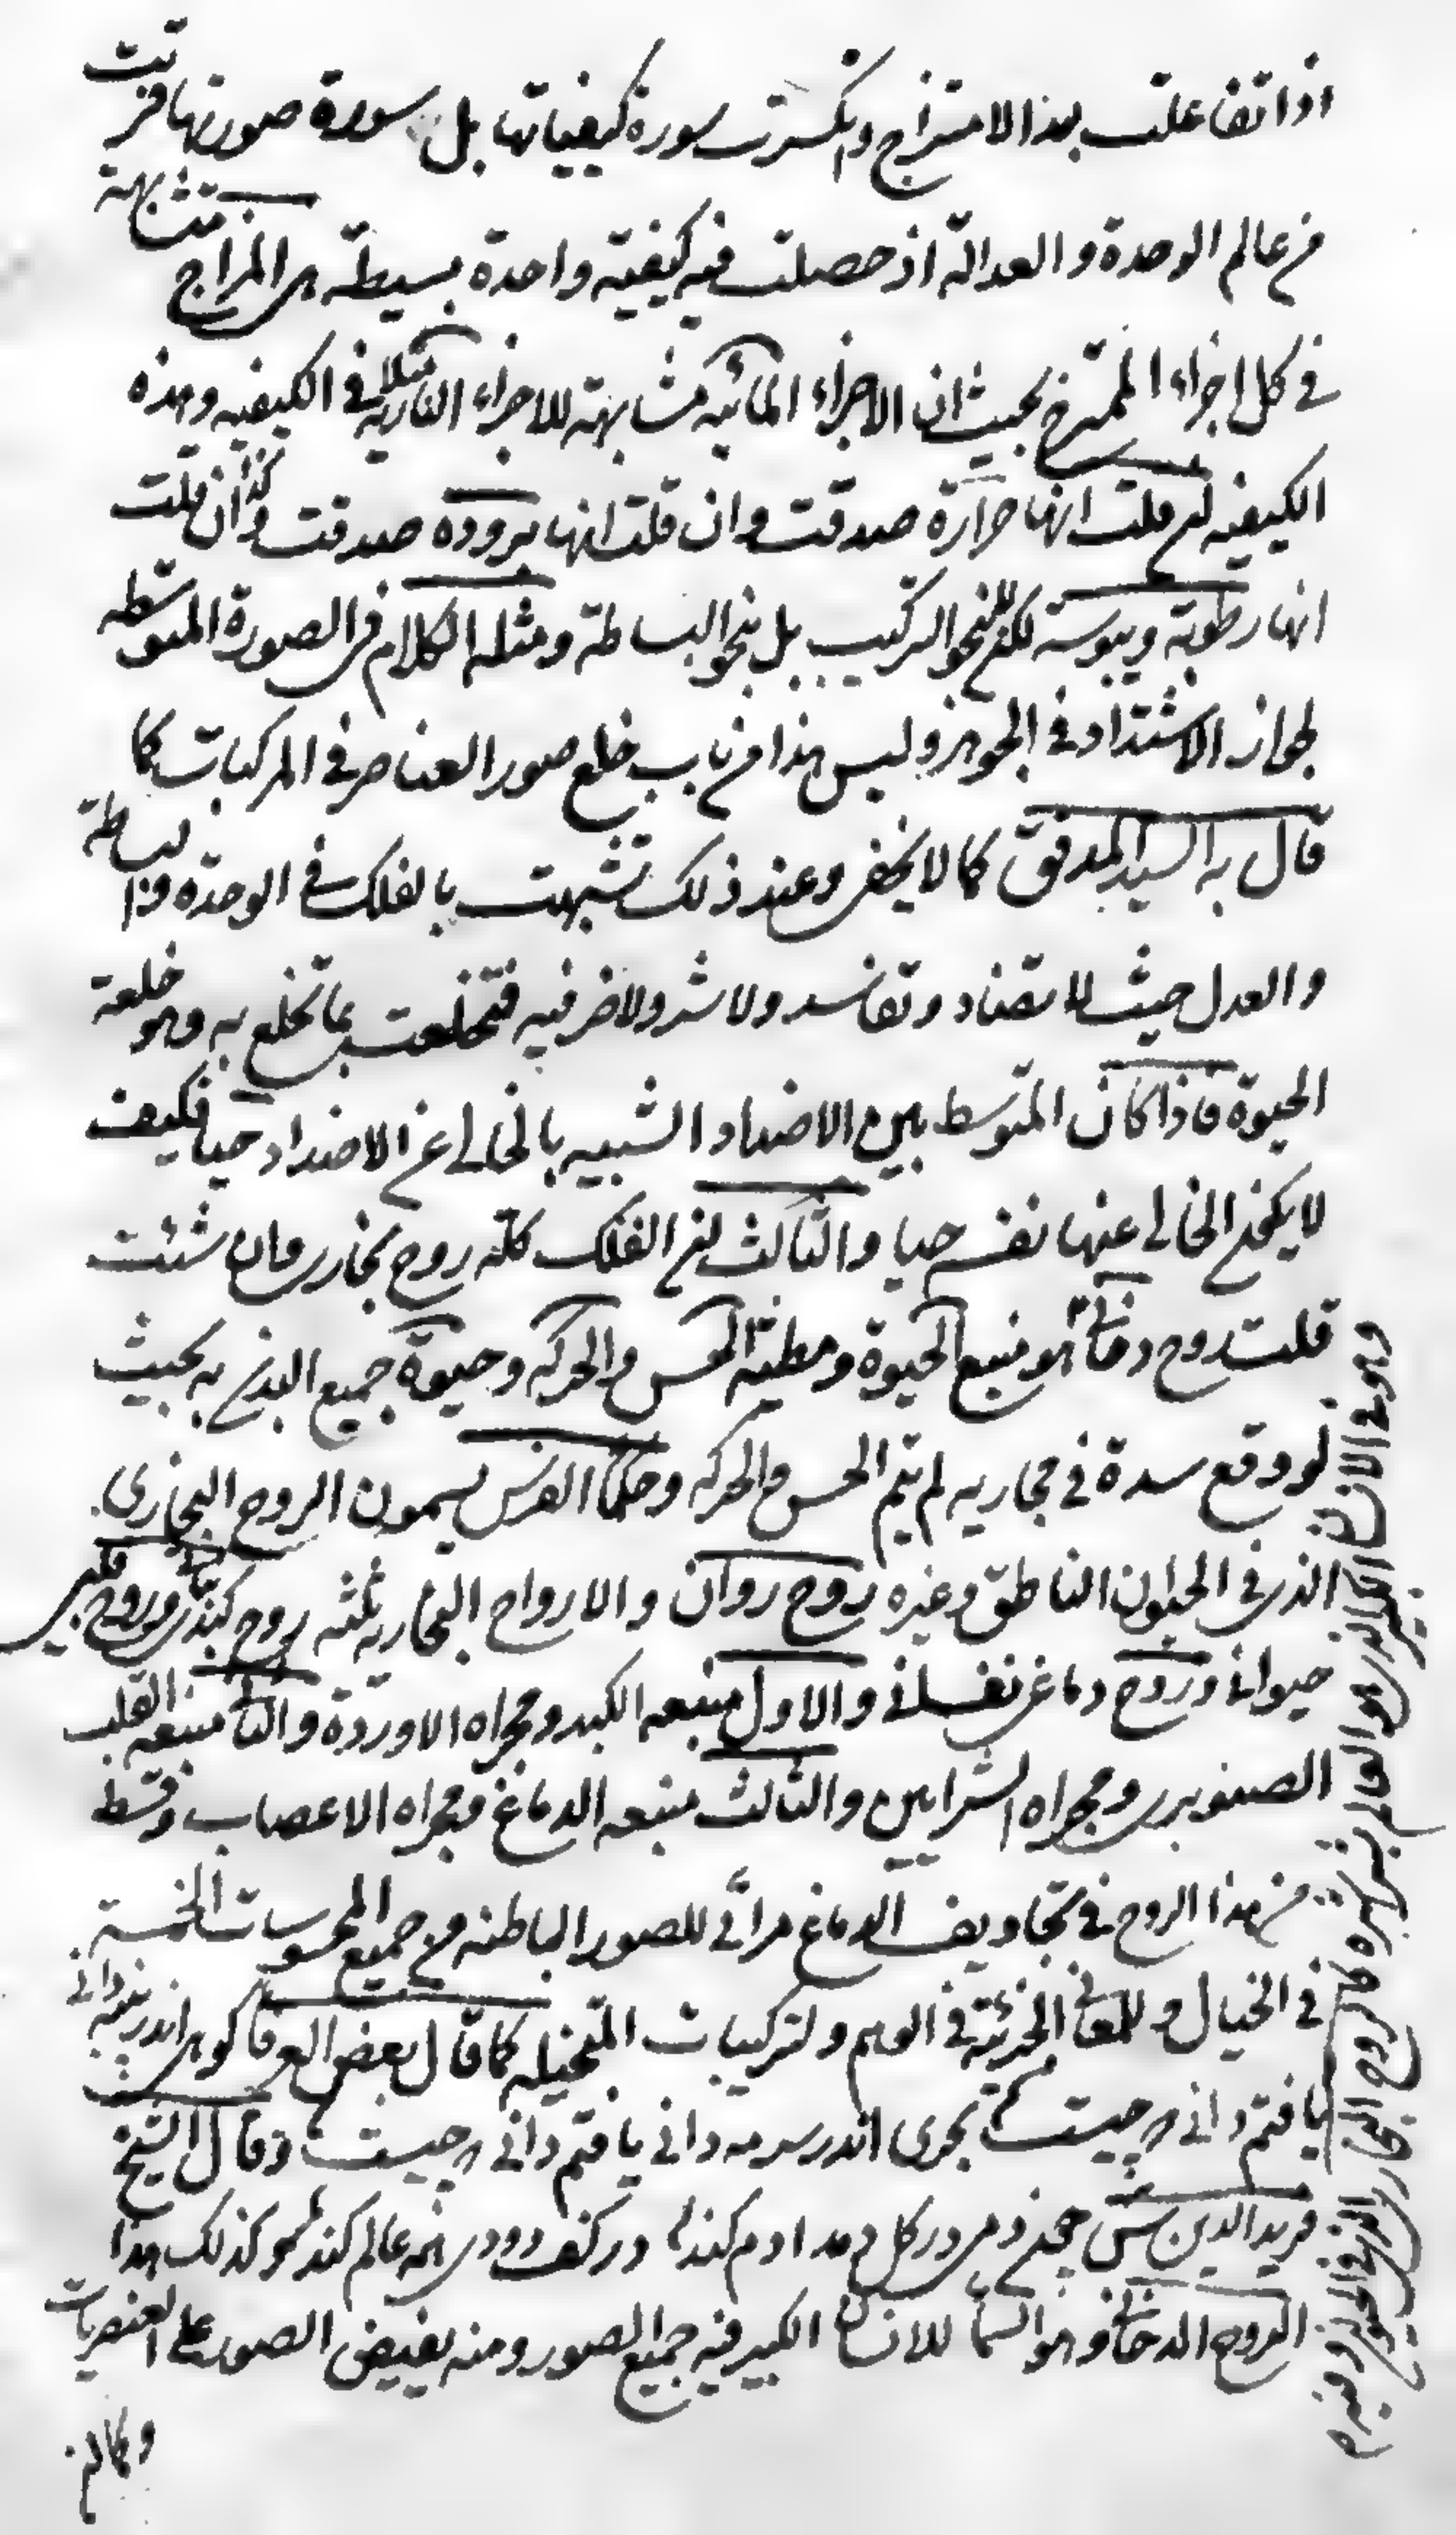 اذا تفاعلت بهذا الامتزاج وانكسرت سورة كيفياتها بل سورة صورتها قربت
من عالم الوحدة والعدالة اذ حصلت فيه كيفية واحدة بسيطة هى المزاج متشابهة
فى كل اجزاء الممتزج بحيث ان الاجزاء المائية مشابهة للاجزاء النارية مثلا فى الكيفية وهذه
الكيفية ان قلت انها حرارة صدقت وان قلت انها برودة صدقت وكذا ان قلت
انها رطوبة ويبوسة لكن لا بنحو التركيب بل بنحو البساطة ومثله الكلام فى الصورة المتوسطة
لجواز الاشتداد فى الجوهر وليس هذا من باب خلع صور العناصر فى المركبات كما
قال به السيد المدقق كما لا يخفى وعند ذلك تشبهت بالفلك فى الوحدة والبساطة
والعدل حيث لا تضاد وتفاسد ولا شر ولا ضر فيه فتخلعت بما تخلع به وهو خلعة
الحيوة فاذا كان المتوسط بين الاضداد الشبيه بالخالى عن الاضداد حيا فكيف
لا يكون الخالى عنها نفسه حيا والثالث ان الفلك كله روح بخارى وان شئت
قلت روح دخانى هو منبع الحيوة ومطية الحس والحركة وحيوة جميع البدن به بحيث
لو وقع سدة فى مجاريه لم يتم الحس والحركة وحكماء الفرس يسمون الروح البخارى
الذى فى الحيوان الناطق وغيره روح روان والارواح البخارية ثلثة روح كبدى نباتى وروح قلبى
حيوانى وروح دماغى نفسانى والاول منبعه الكبد ومجراه الاوردة والثانى منبعه القلب
الصنوبرى ومجراه الشرايين والثالث منبعه الدماغ ومجراه الاعصاب وقسط
من هذا الروح فى تجاويف الدماغ مرائى للصور الباطنة من جميع المحسوسات الخمسة
فى الخيال وللمعانى الجزئية فى الوهم ولتركيبات المتخيلة كما قال بعض العرفا كوهى اندر پنبه دانى
يافتم دانى چه چيست بحرى اندر سرمه دانى يافتم دانى چه چيست وقال الشيخ
فريد الدين در كف دودى همه عالم كند وكذلك هذا
الروح الدخانى وهو السماء للانسان الكبير فيه جميع الصور ومنه يفيض الصور على العنصريات
وكما ان
وهو فى الانسان الكبير الذى هو العالم بشراشره كالروح البخارى الذى فى الحيوان وغيره